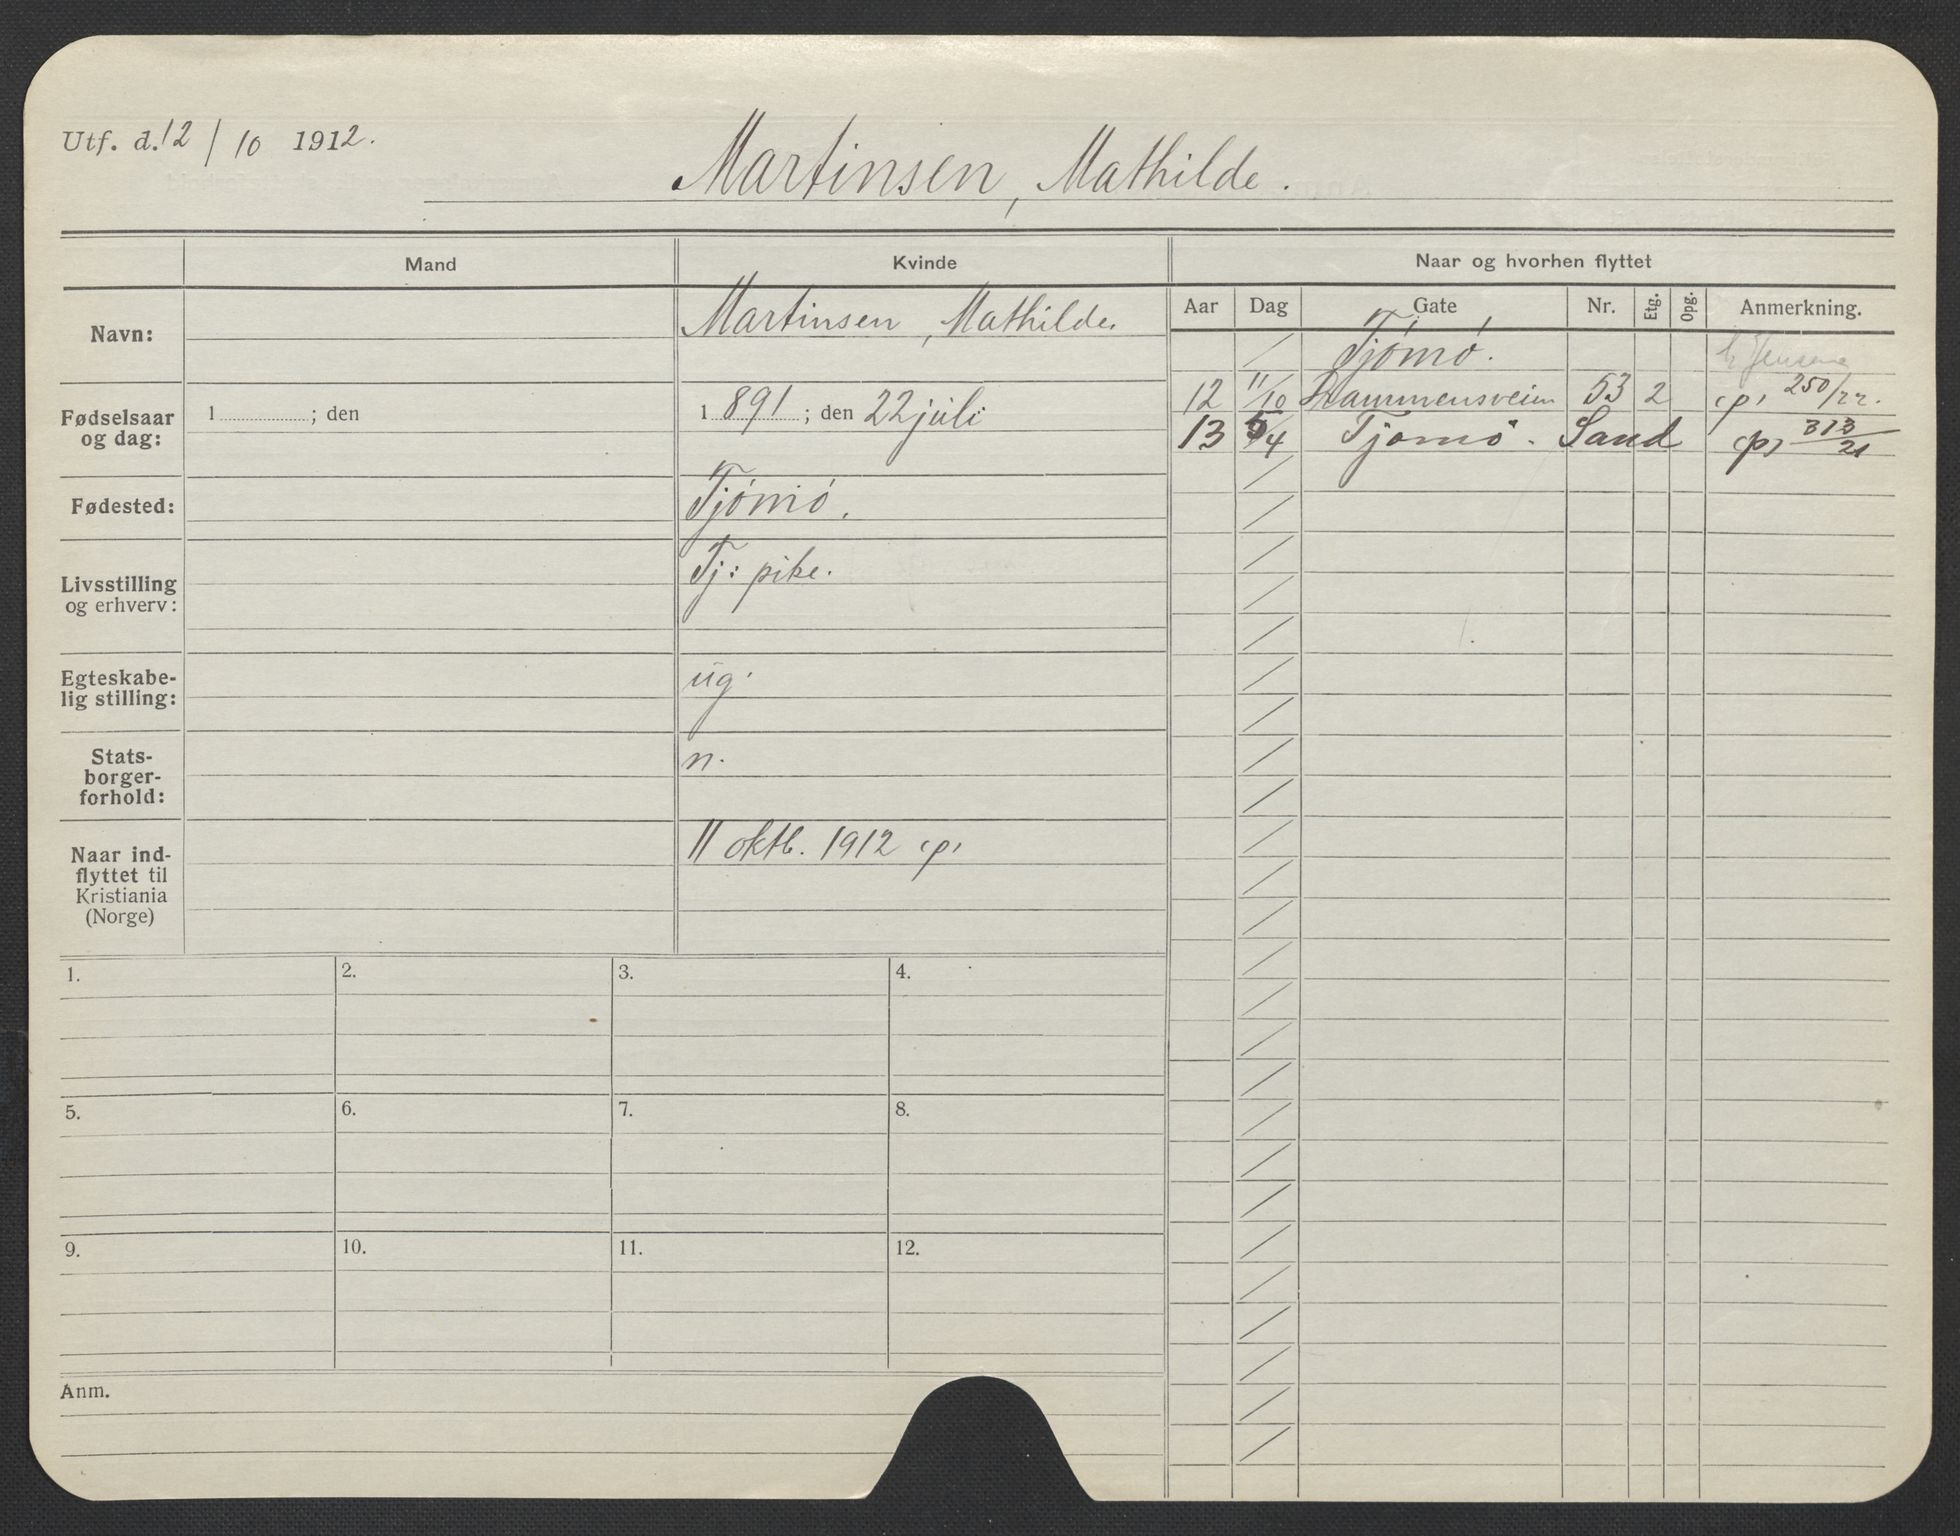 Utf. d. 12/10 1912.
Martinsen, Mathilde.
Mand
Kvinde
Naar og hvorhen flyttet
Navn:
Martinsen, Mathilde.
Fødselsaar og dag:
1 ; den
1891 ; den 22 juli
Fødested:
Tjömö.
Livsstilling og erhverv:
Tj: pike.
Egteskabelig stilling:
ug.
Statsborgerforhold:
n.
Naar indflyttet til Kristiania (Norge)
11 oktb. 1912 (p)
Aar Dag Gate Nr. Etg. Opg. Anmerkning.
Tjömö. h Jensen
12 11/10 Drammensveien 53 2 (p) 250/22.
13 5/4 Tjömö. Sand (p) 313/21
1. 2. 3. 4.
5. 6. 7. 8.
9. 10. 11. 12.
Anm.